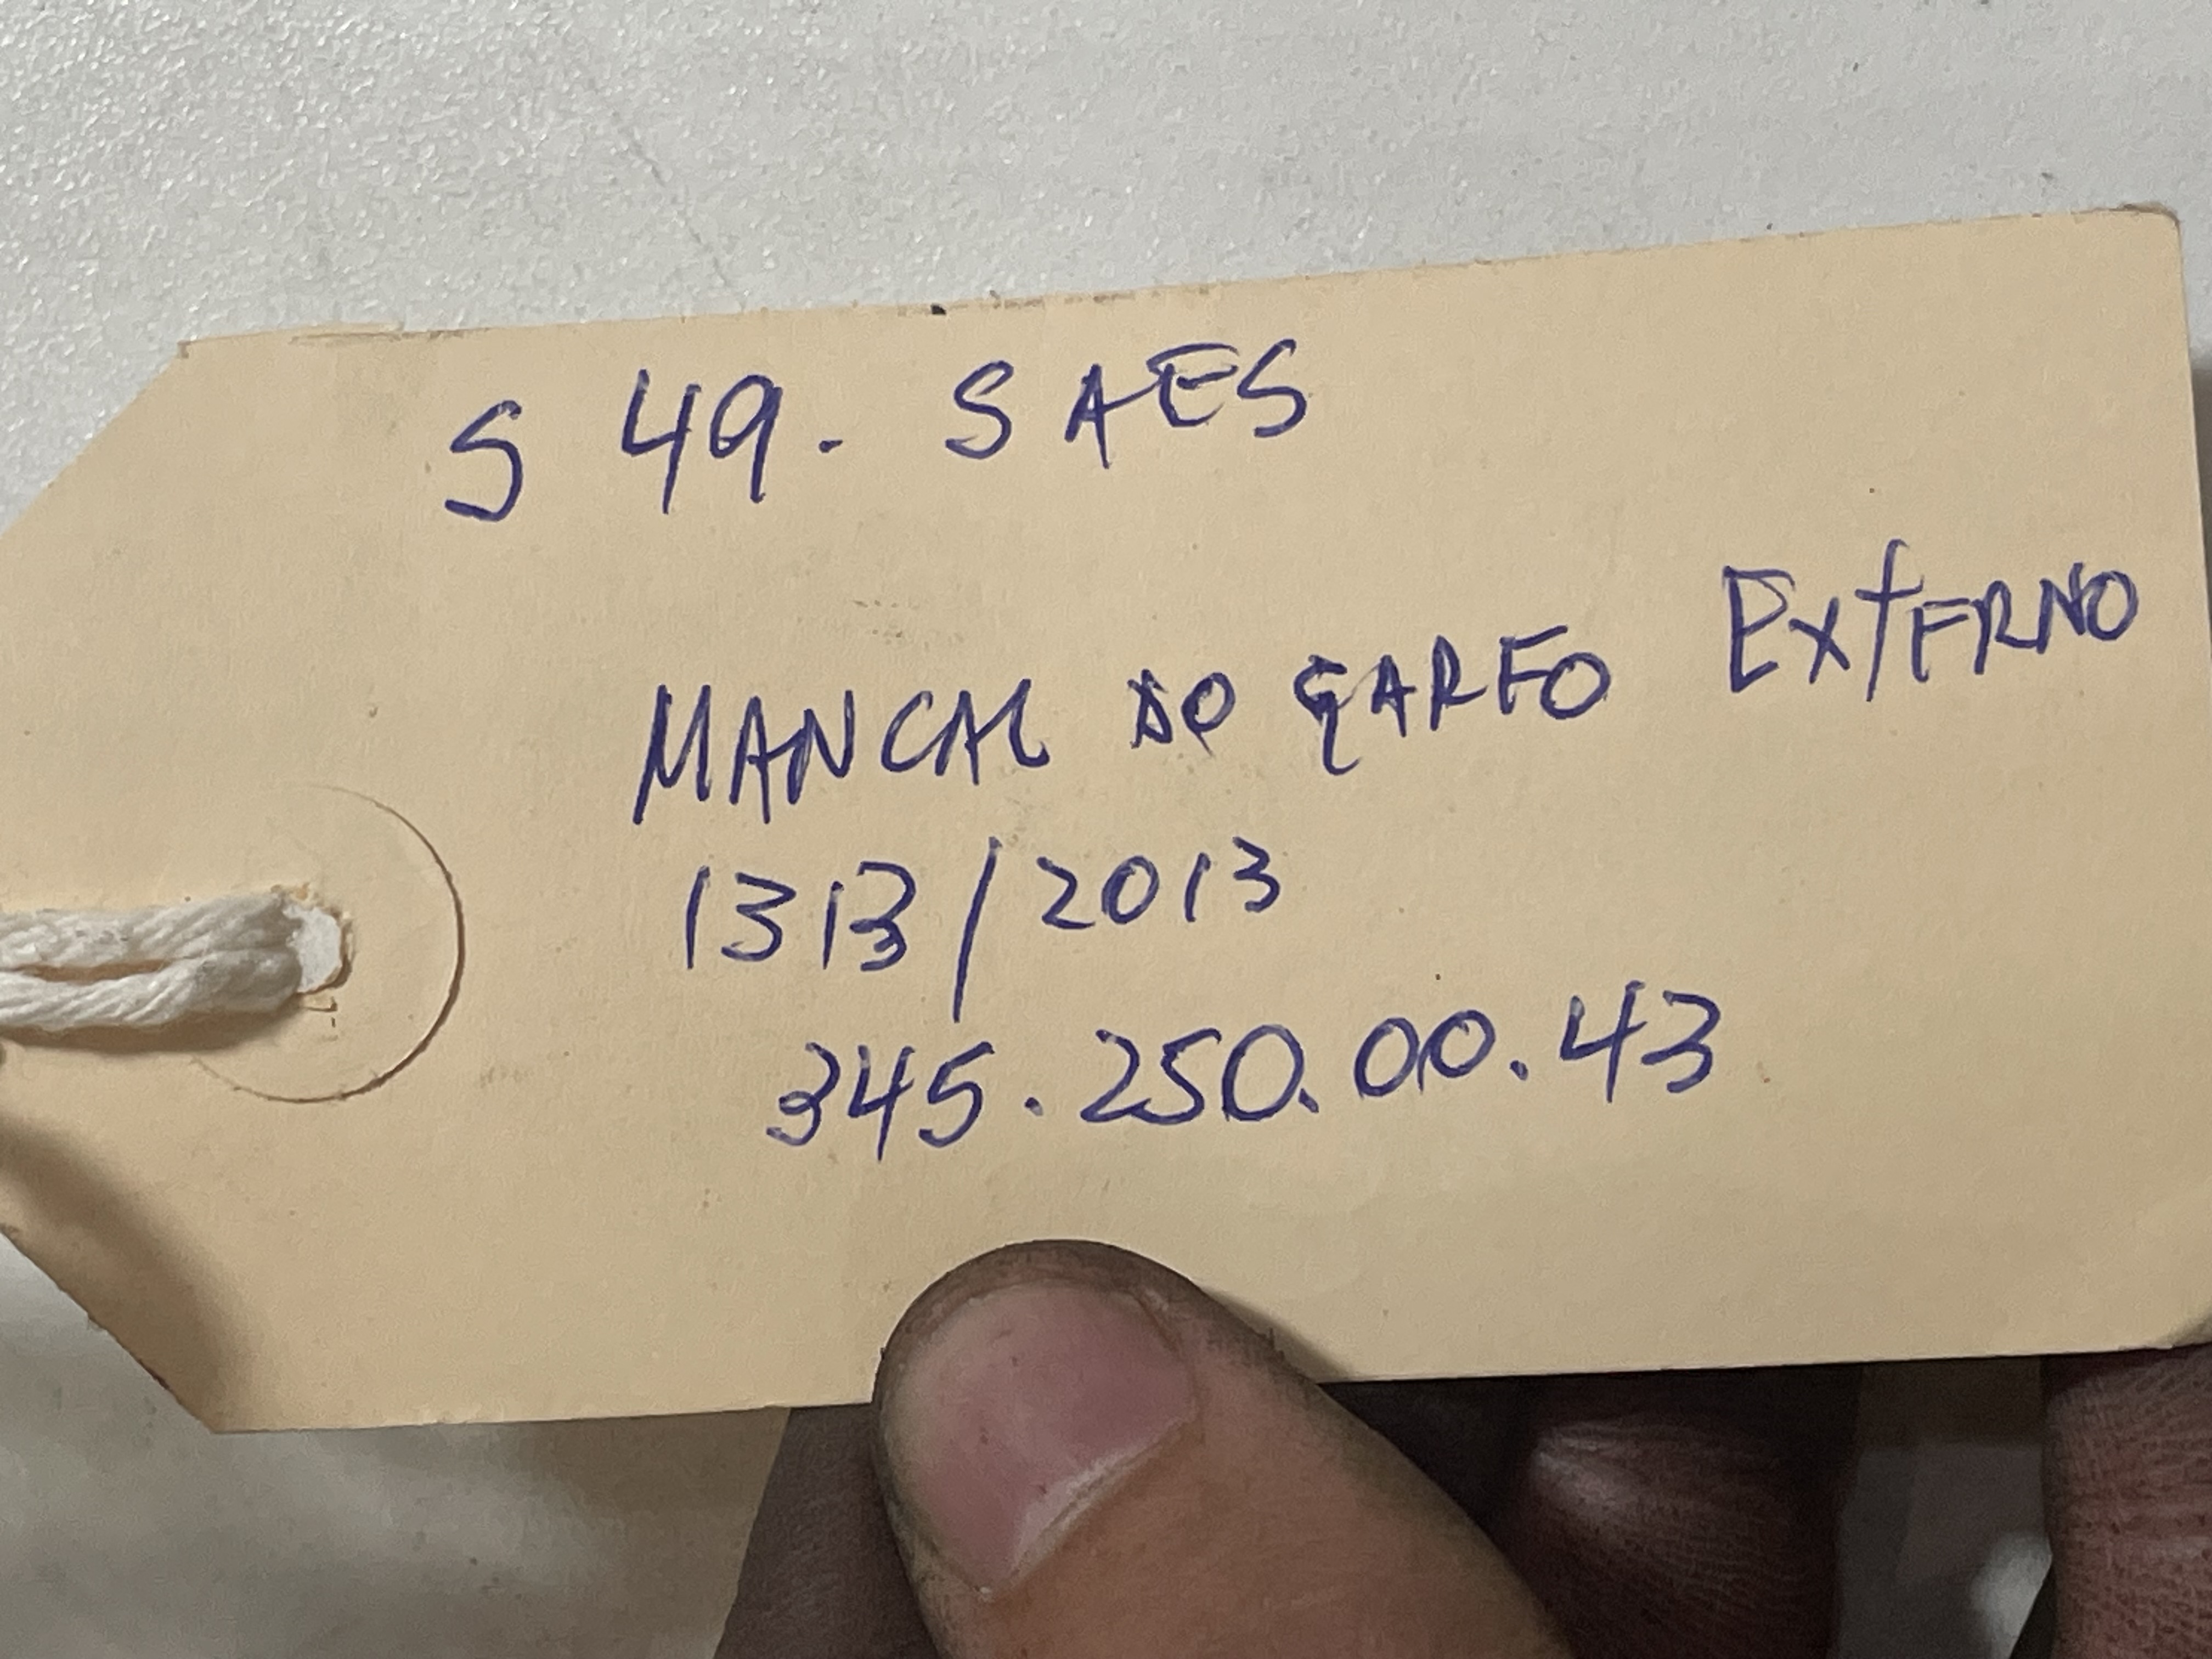 S 49. SAES
MANCAL DO GARFO EXTERNO
1313/2013
345.250.00.43